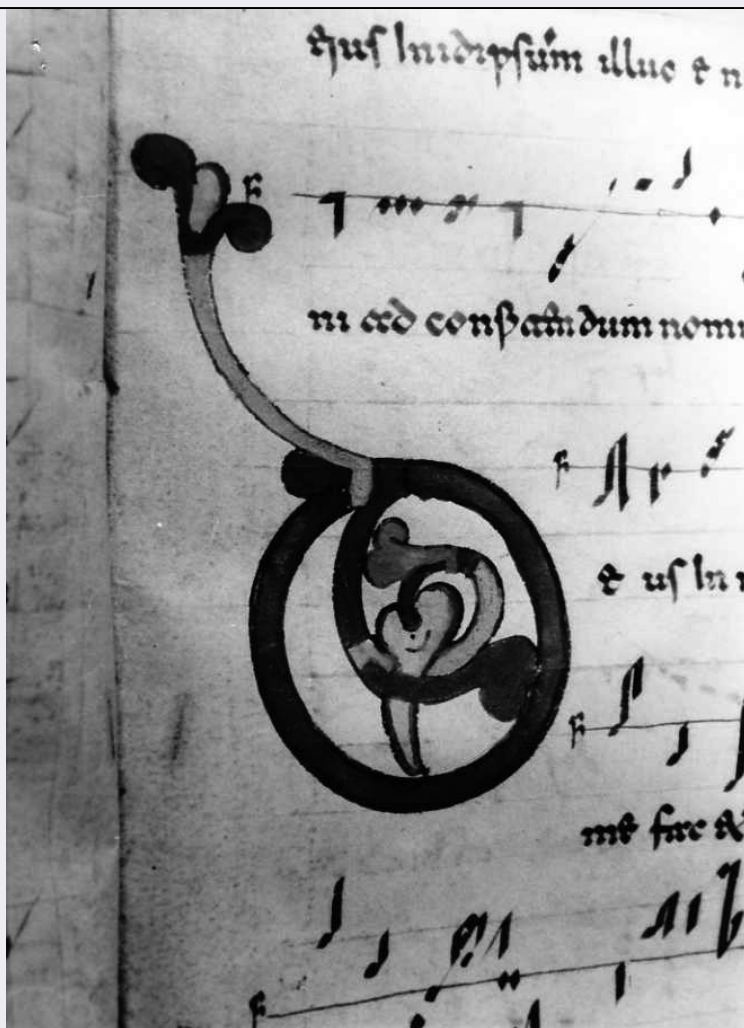 eius Inidipsum illuc e n
ni ad confitendum nomi
D e us In n
me fac